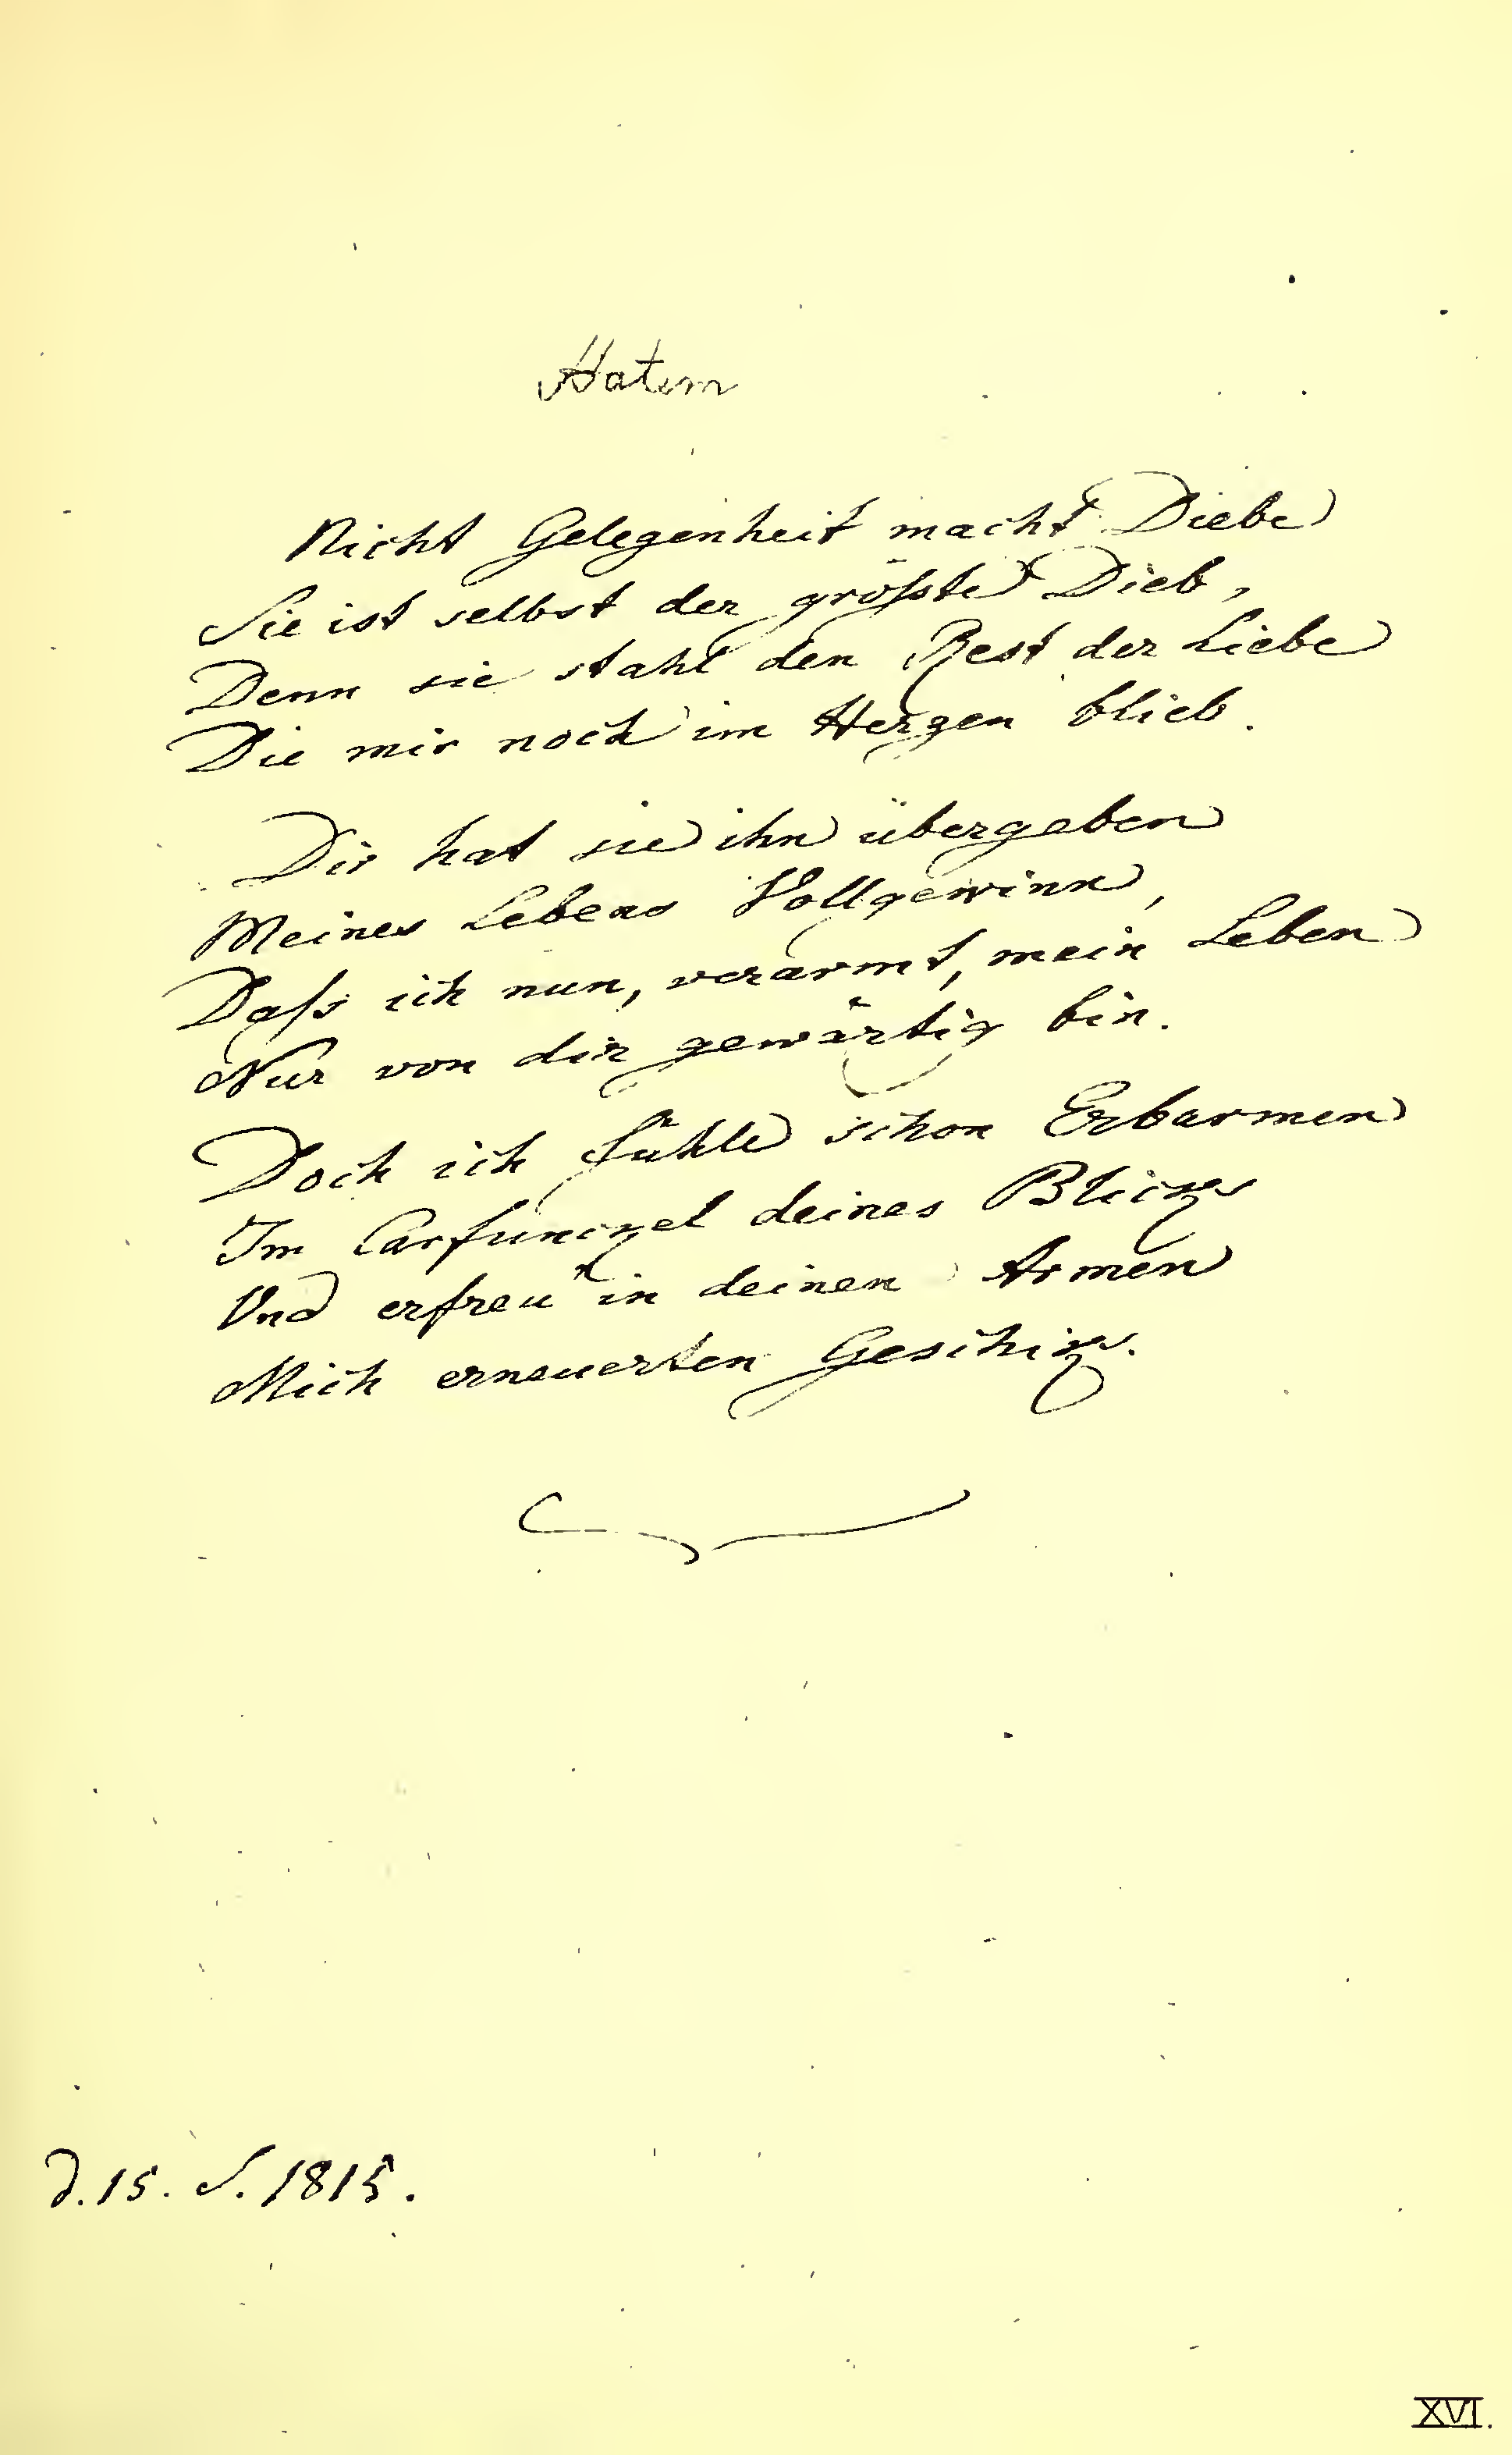 Hatem
Nicht Gelegenheit macht Diebe
Sie ist selbst der größte Dieb,
Denn sie stahl den Rest der Liebe
Die mir noch im Herzen blieb.
Dir hat sie ihn übergeben
Meines Lebens Vollgewinn,
Daß ich nun, verarmt, mein Leben
Nur von dir gewärtig bin.
Doch ich fühle schon Erbarmen
Im Carfunckel deines Blicks
Und erfreu' in deinen Armen
Mich erneuerten Geschicks.
d. 15. S. 1815.
XVI.